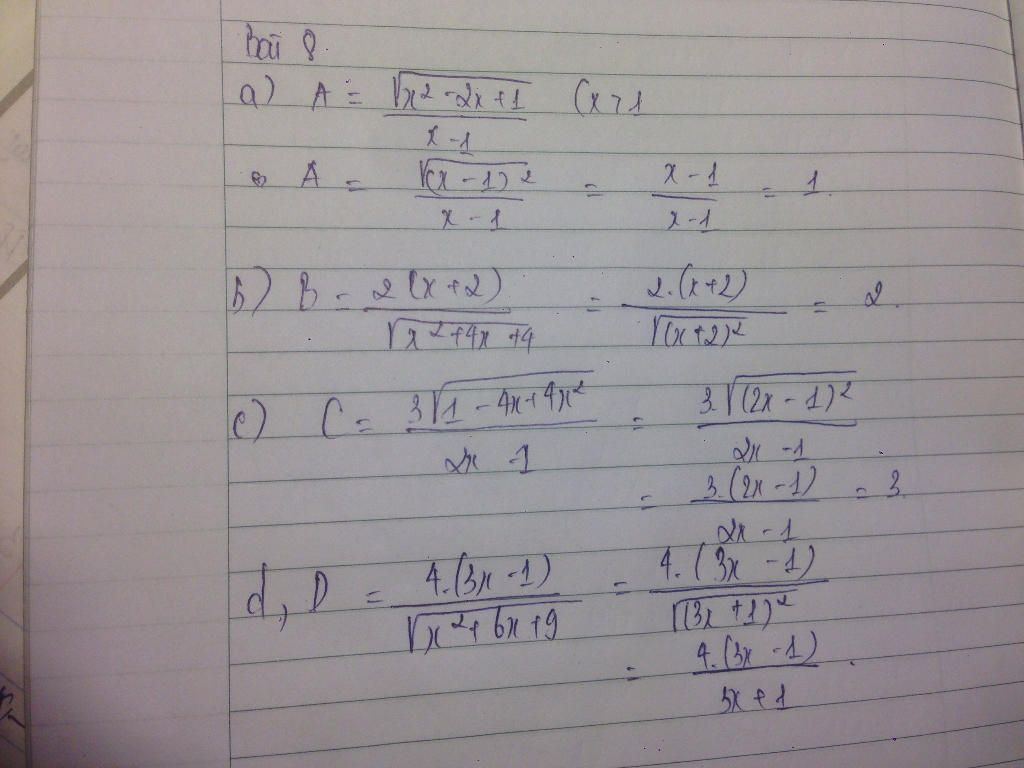 Bài 8
a) A = √(x² - 2x + 1) / (x - 1) (x > 1
⇔ A = √((x - 1)²) / (x - 1) = (x - 1) / (x - 1) = 1.
b) B = 2(x + 2) / √(x² + 4x + 4) = 2.(x + 2) / √((x + 2)²) = 2.
c) C = 3√(1 - 4x + 4x²) / (2x - 1) = 3.√((2x - 1)²) / (2x - 1)
= 3.(2x - 1) / (2x - 1) = 3.
d, D = 4.(3x - 1) / √(x² + 6x + 9) = 4.(3x - 1) / √((3x + 1)²)
= 4.(3x - 1) / (3x + 1).